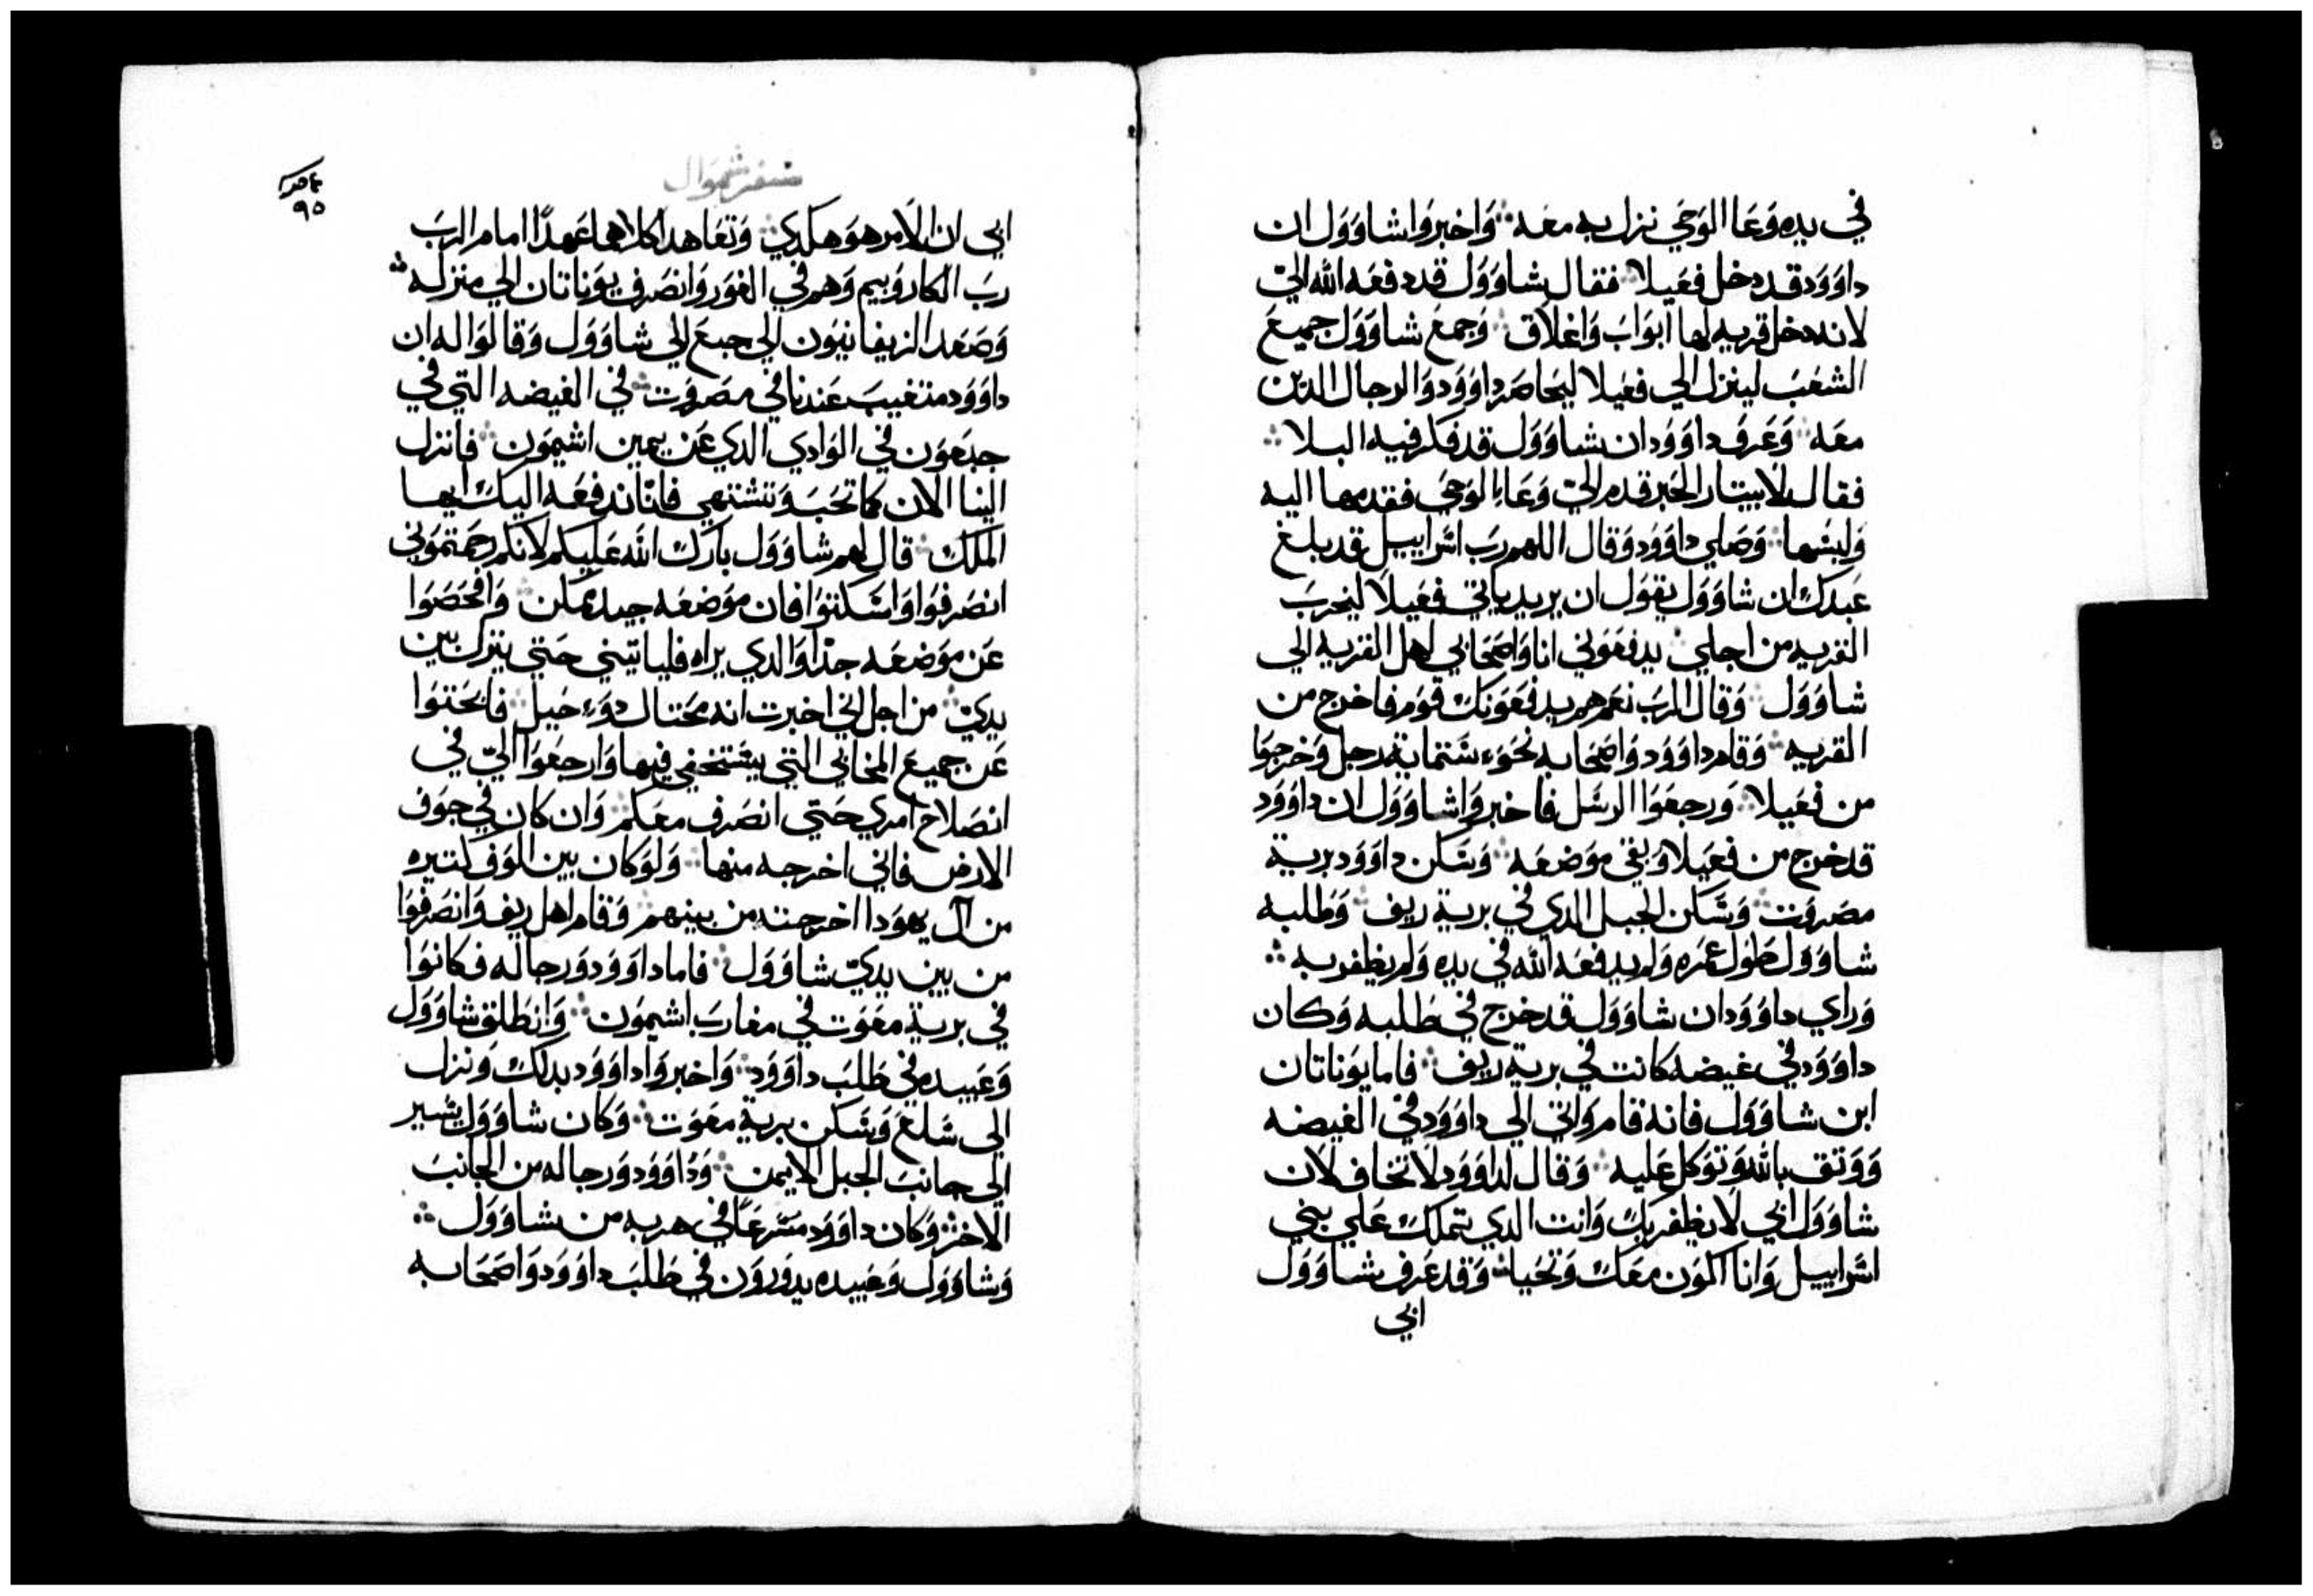 في يده وعا الوحي نزل به معه ۞ واخبروا شاوول ان
داوود قد دخل فعيلا ۞ فقال شاوول قد دفعه الله اليّ
لانه دخل قريه لها ابواب واغلاق ۞ وجمع شاوول جميع
الشعب لينزل الي فعيلا ليحاصر داوود والرجال الدين
معه ۞ وعرف داوود ان شاوول قد فكر فيه البلا ۞
فقال لابيتار الحبر قدم اليّ وعا الوحي فقدمها اليه
ولبسها ۞ وصلي داوود وقال اللهم رب اسراييل قد بلغ
عبدك ان شاوول يقول ان يريد ياتي فعيلا ليخرب
القريه من اجلي ۞ يدفعوني انا واصحابي اهل القريه الي
شاوول ۞ وقال الرب نعم هم يدفعونك قوم فاخرج من
القريه ۞ وقام داوود واصحابه نحو ستماية رجل وخرجوا
من فعيلا ۞ ورجعوا الرسل فاخبروا شاوول ان داوود
قد خرج من فعيلا وبقي موضعه ۞ وسكن داوود برية
مصروت ۞ وسكن الجبل الدي في برية ريف ۞ وطلبه
شاوول طول عمره ولم يدفعه الله في يده ولم يظفر به ۞
وراي داوود ان شاوول قد خرج في طلبه وكان
داوود في غيضه كانت في برية ريف ۞ فاما يوناتان
ابن شاوول فانه قام واتي الي داوود في الغيضه
ووتق بالله وتوكل عليه ۞ وقال لداوود لا تخاف لان
شاوول ابي لا يظفر بك وانت الدي تتملك علي بني
اسراييل وانا اكون معك وتحيا ۞ وقد عرف شاوول
ابي
سفر شموال
٩٥
ابي ان الامر هو هكدي ۞ وتعاهدا كلاهما عهدًا امام الرب
رب الكاروبيم وهم في الغور وانصرف يوناتان الي منزله ۞
وصعد الزيفانيون الي جبع الي شاوول وقالوا له ان
داوود متغيب عندنا في مصروت ۞ في الغيضه التي في
جبعون في الوادي الدي عن يمين اشيمون ۞ فانزل
الينا الان كما تحب وتشتهي فانّا ندفعه اليك ايها
الملك ۞ قال لهم شاوول بارك الله عليكم لانكم رحمتموني
انصرفوا واسكتوا فان موضعه جيد ممكن ۞ وافحصوا
عن موضعه جدًا والدي يراه فلياتيني حتي ينزل بين
يديّ ۞ من اجل اني اخبرت انه محتال دوء حيل ۞ فابحتوا
عن جميع المخابي التي يستخفي فيها وارجعوا اليّ في
انصلاح امري حتي انصرف معكم ۞ وان كان في جوف
الارض فاني اخرجه منها ۞ ولو كان بين الوف كتيره
من آل يهودا اخرجته من بينهم ۞ وقام اهل ريف وانصرفوا
من بين يديّ شاوول ۞ فاما داوود ورجاله فكانوا
في برية معوت في مغارب اشيمون ۞ وانطلق شاوول
وعبيده في طلب داوود ۞ واخبروا داوود بدلك ونزل
الي شلع وسكن برية معوت ۞ وكان شاوول يسير
الي جانب الجبل الايمن ۞ وداوود ورجاله من الجانب
الاخر ۞ وكان داوود مسرعًا في هربه من شاوول ۞
وشاوول وعبيده يدورون في طلب داوود واصحابه